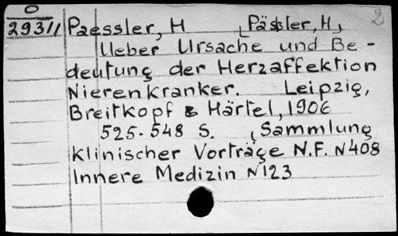 O
29311 Paessler, H [Pässler, H]
Ueber Ursache und Be-
deutung der Herzaffektion
Nierenkranker. Leipzig,
Breitkopf & Härtel, 1906
525-548 S. [Sammlung
klinischer Vorträge N.F. N408
Innere Medizin N123